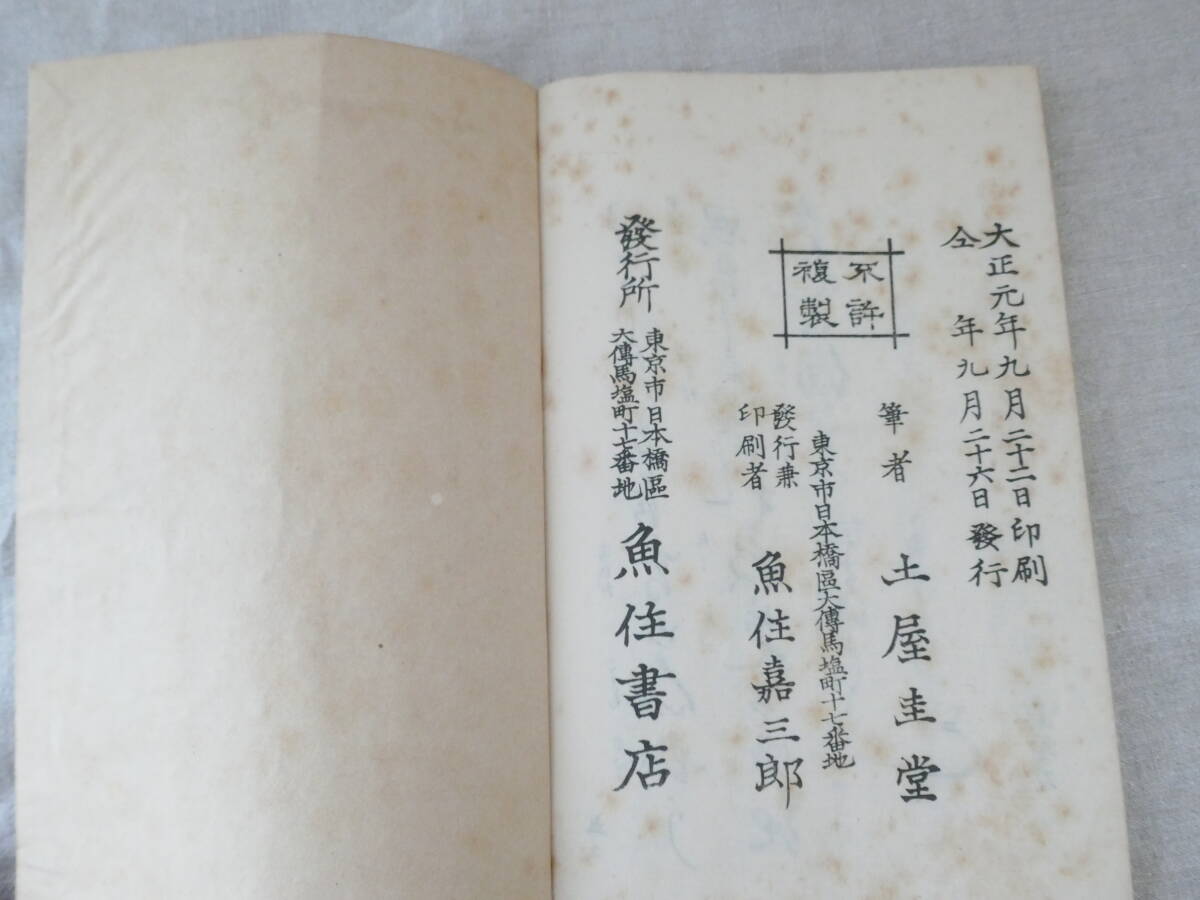 大正元年九月二十二日印刷
仝年九月二十六日發行
不許
複製
筆者 土屋圭堂
東京市日本橋區大傳馬塩町十七番地
發行兼
印刷者 魚住嘉三郎
發行所
東京市日本橋區
大傳馬塩町十七番地
魚住書店